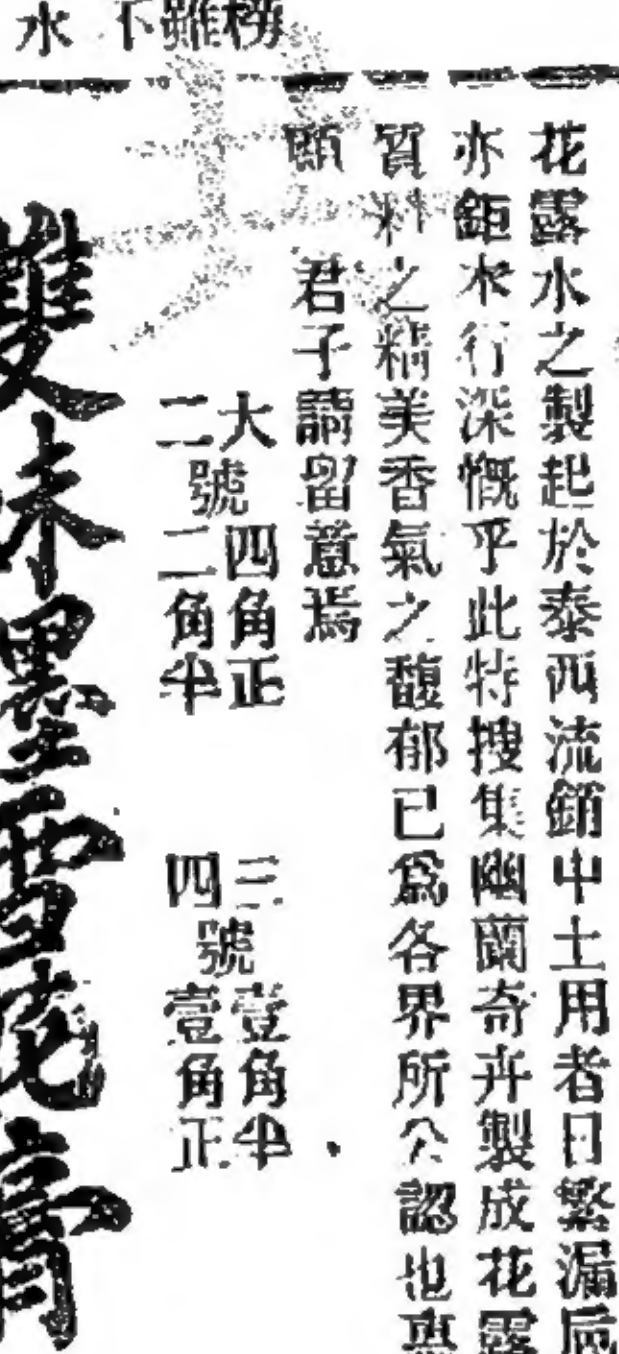 水 不雖榜
花露水之製起於泰西流銷中土用者日繁漏巵
亦鉅本行深慨乎此特搜集幽蘭奇卉製成花露
質料之精美香氣之馥郁已為各界所公認也惠
顧 君子請留意焉
大號四角正 三號壹角半
二號二角半 四號壹角正
雙妹墨雪花膏